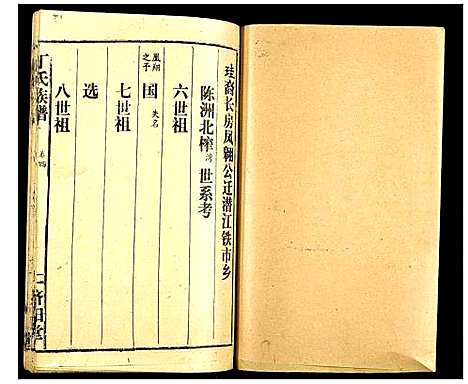 珪裔长房凤翱公迁潜江铁市乡
陈洲北榨湾世系考
六世祖
凰翔之子
国 失名
七世祖
选
八世祖
丁氏族谱 卷四 济阳堂